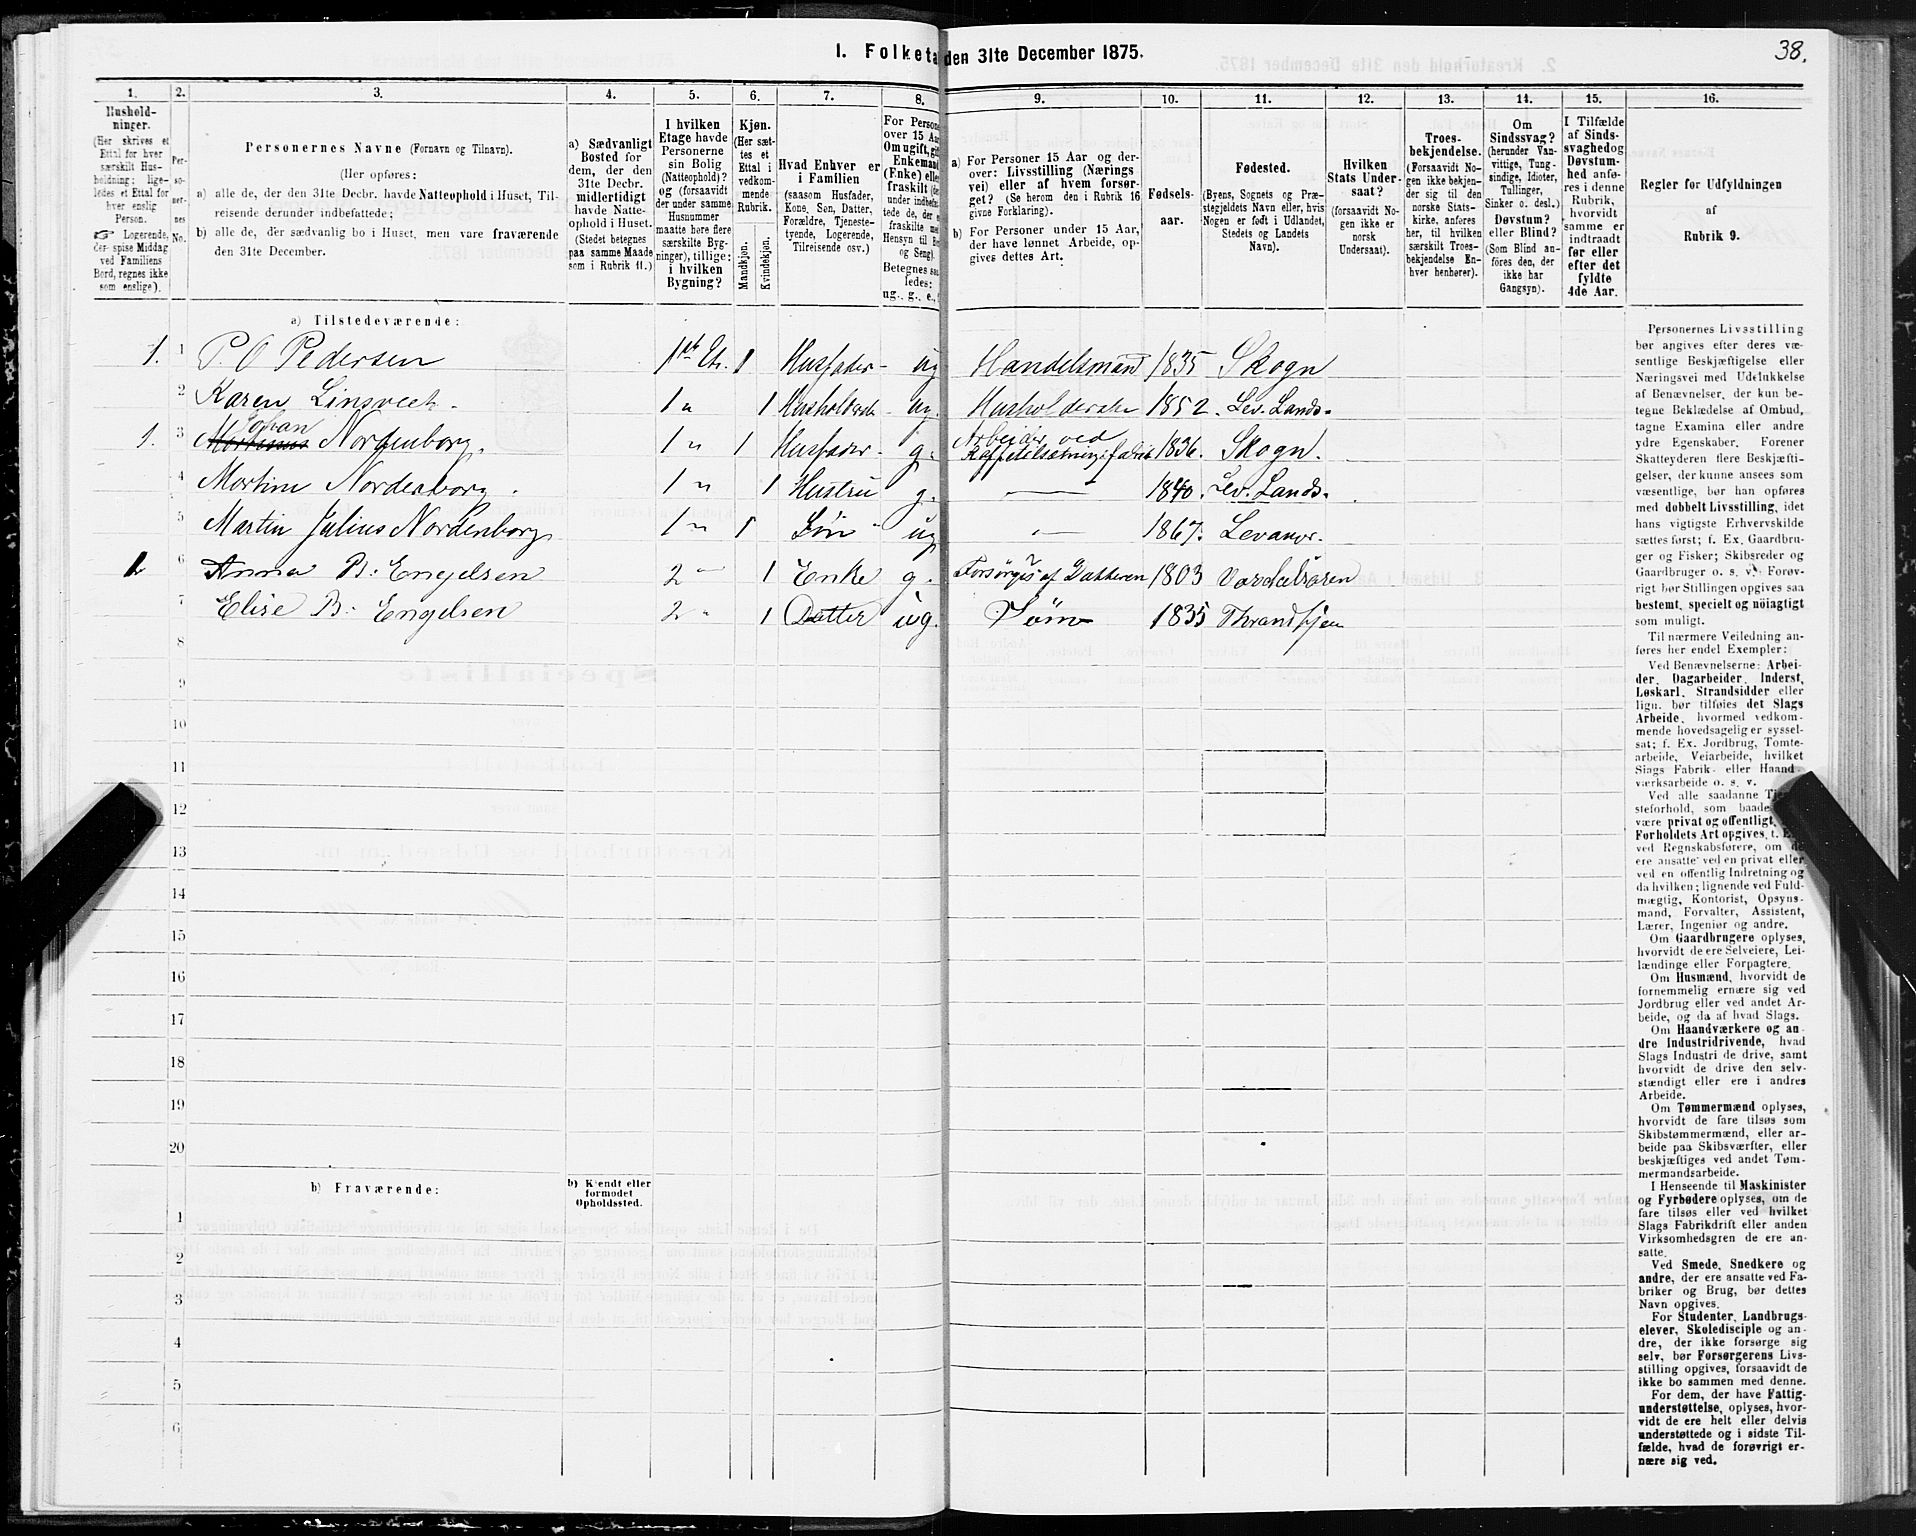 1. Folketa den 31te December 1875.
38.
1. 2. 3. 4. 5. 6. 7. 8. 9. 10. 11. 12. 13. 14. 15. 16.
Hushold-
ninger.
(Her skrives et
Ettal for hver
særskilt Hus-
holdning; lige-
ledes et Ettal for
hver enslig
Person.
☞ Logerende,
der spise Middag
ved Familiens
Bord, regnes ikke
som enslige).
Per-
so-
ner-
nes
No.
Personernes Navne (Fornavn og Tilnavn).
(Her opføres:
a) alle de, der den 31te Decbr. havde Natteophold i Huset, Til-
reisende derunder indbefattede;
b) alle de, der sædvanlig bo i Huset, men vare fraværende
den 31te December.
a) Sædvanligt
Bosted for
dem, der den
31te Decbr.
midlertidigt
havde Natte-
ophold i Huset.
(Stedet betegnes
paa samme Maade
som i Rubrik 11.)
I hvilken
Etage havde
Personerne
sin Bolig
(Natteophold)?
og (forsaavidt
der under samme
Husnummer
maatte høre flere
særskilte Byg-
ninger), tillige:
i hvilken
Bygning?
Kjøn.
(Her sæt-
tes et
Ettal i
vedkom-
mende
Rubrik.
Mandkjøn.
Kvindekjøn.
Hvad Enhver er
i Familien
(saasom Husfader,
Kone, Søn, Datter,
Forældre, Tjeneste-
tyende, Logerende,
Tilreisende osv.)
For Persone
over 15 Aar
Om ugift, gif
Enkemand
(Enke) elle
fraskilt (de
under indbefat-
tede de, der e
fraskilte me
Hensyn til B
og Seng).
Betegnes saa
ledes:
ug., g., e.,
a) For Personer 15 Aar og der-
over: Livsstilling (Nærings
vei) eller af hvem forsør-
get? (Se herom den i Rubrik 16
givne Forklaring).
b) For Personer under 15 Aar,
der have lønnet Arbeide, op-
gives dettes Art.
Fødsels-
aar.
Fødested.
(Byens, Sognets og Præ-
stegjeldets Navn eller, hvis
Nogen er født i Udlandet,
Stedets og Landets
Navn).
Hvilken
Stats Under-
saat?
(forsaavidt No-
gen ikke er
norsk
Undersaat).
Troes-
bekjendelse.
(Forsaavidt No-
gen ikke bekjen-
der sig til den
norske Stats-
kirke, anføres
her, til hvilken
særskilt Troes-
bekjendelse En-
hver henhører).
Om
Sindssvag?
(herunder Van-
vittige, Tung-
sindige, Idioter,
Tullinger,
Sinker o. desl.)
Døvstum?
eller Blind?
(Som Blind an-
føres den, der
ikke har
Gangsyn).
I Tilfælde
af Sinds-
svaghed og
Døvstum-
hed anfø-
res i denne
Rubrik,
hvorvidt
samme er
indtraadt
før eller
efter det
fyldte
4de Aar.
Regler for Udfyldningen
af
Rubrik 9.
a) Tilstedeværende:
1. 1 P. O Pedersen 1ste Et. 1 Husfader - ug Handelsmand 1835 Skogn
2 Karen 1 " 1 ug. 1852. Lev. Lands.
Johan
1. 3 Nordenborg. 1 " 1 Husfader - g. Arbeider ved 1836. Skogn.
4 Martine Nordenborg. 1 " 1 Hustru g. — 1840. Lev. Lands.
5 Martin Julius Nordenborg 1 " 1 Søn ug — 1867. Levanger.
6 Anna B. Engelsen 2 " 1 Enke g. Forsørges af Datteren 1803
7 Elise B. Engelsen 2 " 1 Datter ug. Søm 1835
8
9
10
11
12
13
14
15
16
17
18
19
20
b) Fraværende:
b) Kjendt eller
formodet
Opholdssted.
1
2
3
4
5
6
Personernes Livsstilling
bør angives efter deres væ-
sentlige Beskjæftigelse eller
Næringsvei med Udelukkelse
af Benævnelser, der kun be-
tegne Beklædelse af Ombud,
tagne Examina eller andre
ydre Egenskaber. Forener
Skatteyderen flere Beskjæfti-
gelser, der kunne ansees som
væsentlige, bør han opføres
med dobbelt Livsstilling, idet
hans vigtigste Erhvervskilde
sættes først; f. Ex. Gaardbru-
ger og Fisker; Skibsreder og
Gaardbruger o. s. v. Forøv-
rigt bør Stillingen opgives saa
bestemt, specielt og nöiagtigt
som muligt.
Til nærmere Veiledning an-
føres her endel Exempler:
Ved Benævnelserne: Arbei-
der, Dagarbeider, Inderst,
Løskarl, Strandsidder eller
lign. bør tilføies det Slags
Arbeide, hvormed vedkom-
mende hovedsagelig er syssel-
sat; f. Ex. Jordbrug, Tomte-
arbeide, Veiarbeide, hvilket
Slags Fabrik- eller Haand-
værksarbeide o. s. v.
Ved alle saadanne
steforhold, som baade
være privat og offentligt,
Forholdets Art opgives, t.
ved Regnskabsførere, om de
ere ansatte ved en privat eller
ved en offentlig Indretning og
da hvilken; lignende ved Fuld-
mægtig, Kontorist, Opsyns-
mand, Forvalter, Assistent,
Lærer, Ingeniør og andre.
Om Gaardbrugere oplyses,
hvorvidt de ere Selveiere, Lei-
lændinge eller Forpagtere.
Om Husmænd, hvorvidt de
fornemmelig ernære sig ved
Jordbrug eller ved andet Ar-
beide, og da af hvad Slags.
Om Haandværkere og an-
dre Industridrivende, hvad
Slags Industri de drive, samt
hvorvidt de drive den selv-
stændigt eller ere i andres
Arbeide.
Om Tømmermænd oplyses,
hvorvidt de fare tilsøs som
Skibstømmermænd, eller ar-
beide paa Skibsværfter, eller
beskjæftiges ved andet Tøm-
mermandsarbeide.
I Henseende til Maskinister
og Fyrbødere oplyses, om de
fare tilsøs eller ved hvilket
Slags Fabrikdrift eller anden
Virksomhedsgren de ere an-
satte.
Ved Smede, Snedkere og
andre, der ere ansatte ved Fa-
briker og Brug, bør dettes
Navn opgives.
For Studenter, Landbrugs-
elever, Skoledisciple og an-
dre, der ikke forsørge sig
selv, bør Forsørgerens Livs-
stilling opgives, forsaavidt de
ikke bo sammen med denne.
For dem, der have Fattig-
understøttelse, oplyses, hvor-
vidt de ere helt eller delvis
understøttede og i sidste Til-
fælde, hvad de forøvrigt er-
nære sig ved.